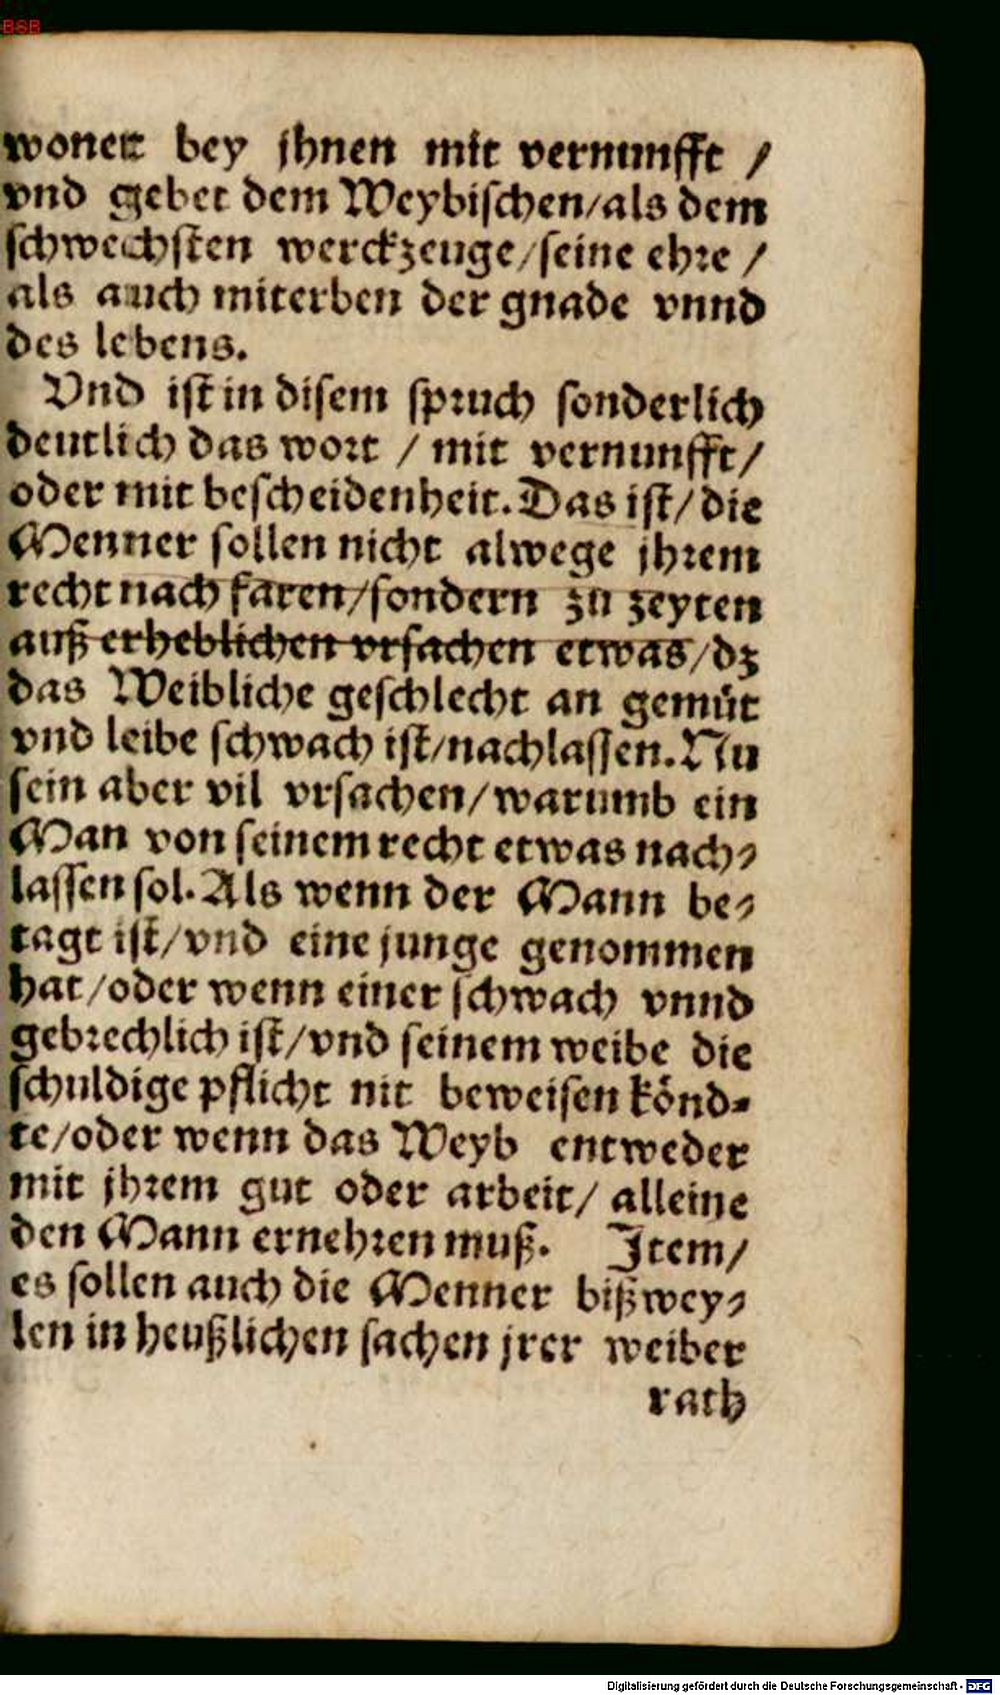 BSB
wonet bey jhnen mit vernunfft /
vnd gebet dem Weybischen/als dem
schwechsten werckzeuge/seine ehre /
als auch miterben der gnade vnnd
des lebens.
Vnd ist in disem spruch sonderlich
deutlich das wort / mit vernunfft/
oder mit bescheidenheit. Das ist/die
Menner sollen nicht alwege jhrem
recht nach faren/sondern zu zeyten
auß erheblichen vrsachen etwas/dz
das Weibliche geschlecht an gemüt
vnd leibe schwach ist/nachlassen. Nu
sein aber vil vrsachen/warumb ein
Man von seinem recht etwas nach⸗
lassen sol. Als wenn der Mann be⸗
tagt ist/vnd eine junge genommen
hat/oder wenn einer schwach vnnd
gebrechlich ist/vnd seinem weibe die
schuldige pflicht nit beweisen könd⸗
te/oder wenn das Weyb entweder
mit jhrem gut oder arbeit/ alleine
den Mann ernehren muß. Item/
es sollen auch die Menner bißwey⸗
len in heußlichen sachen jrer weiber
rath
Digitalisierung gefördert durch die Deutsche Forschungsgemeinschaft - DFG